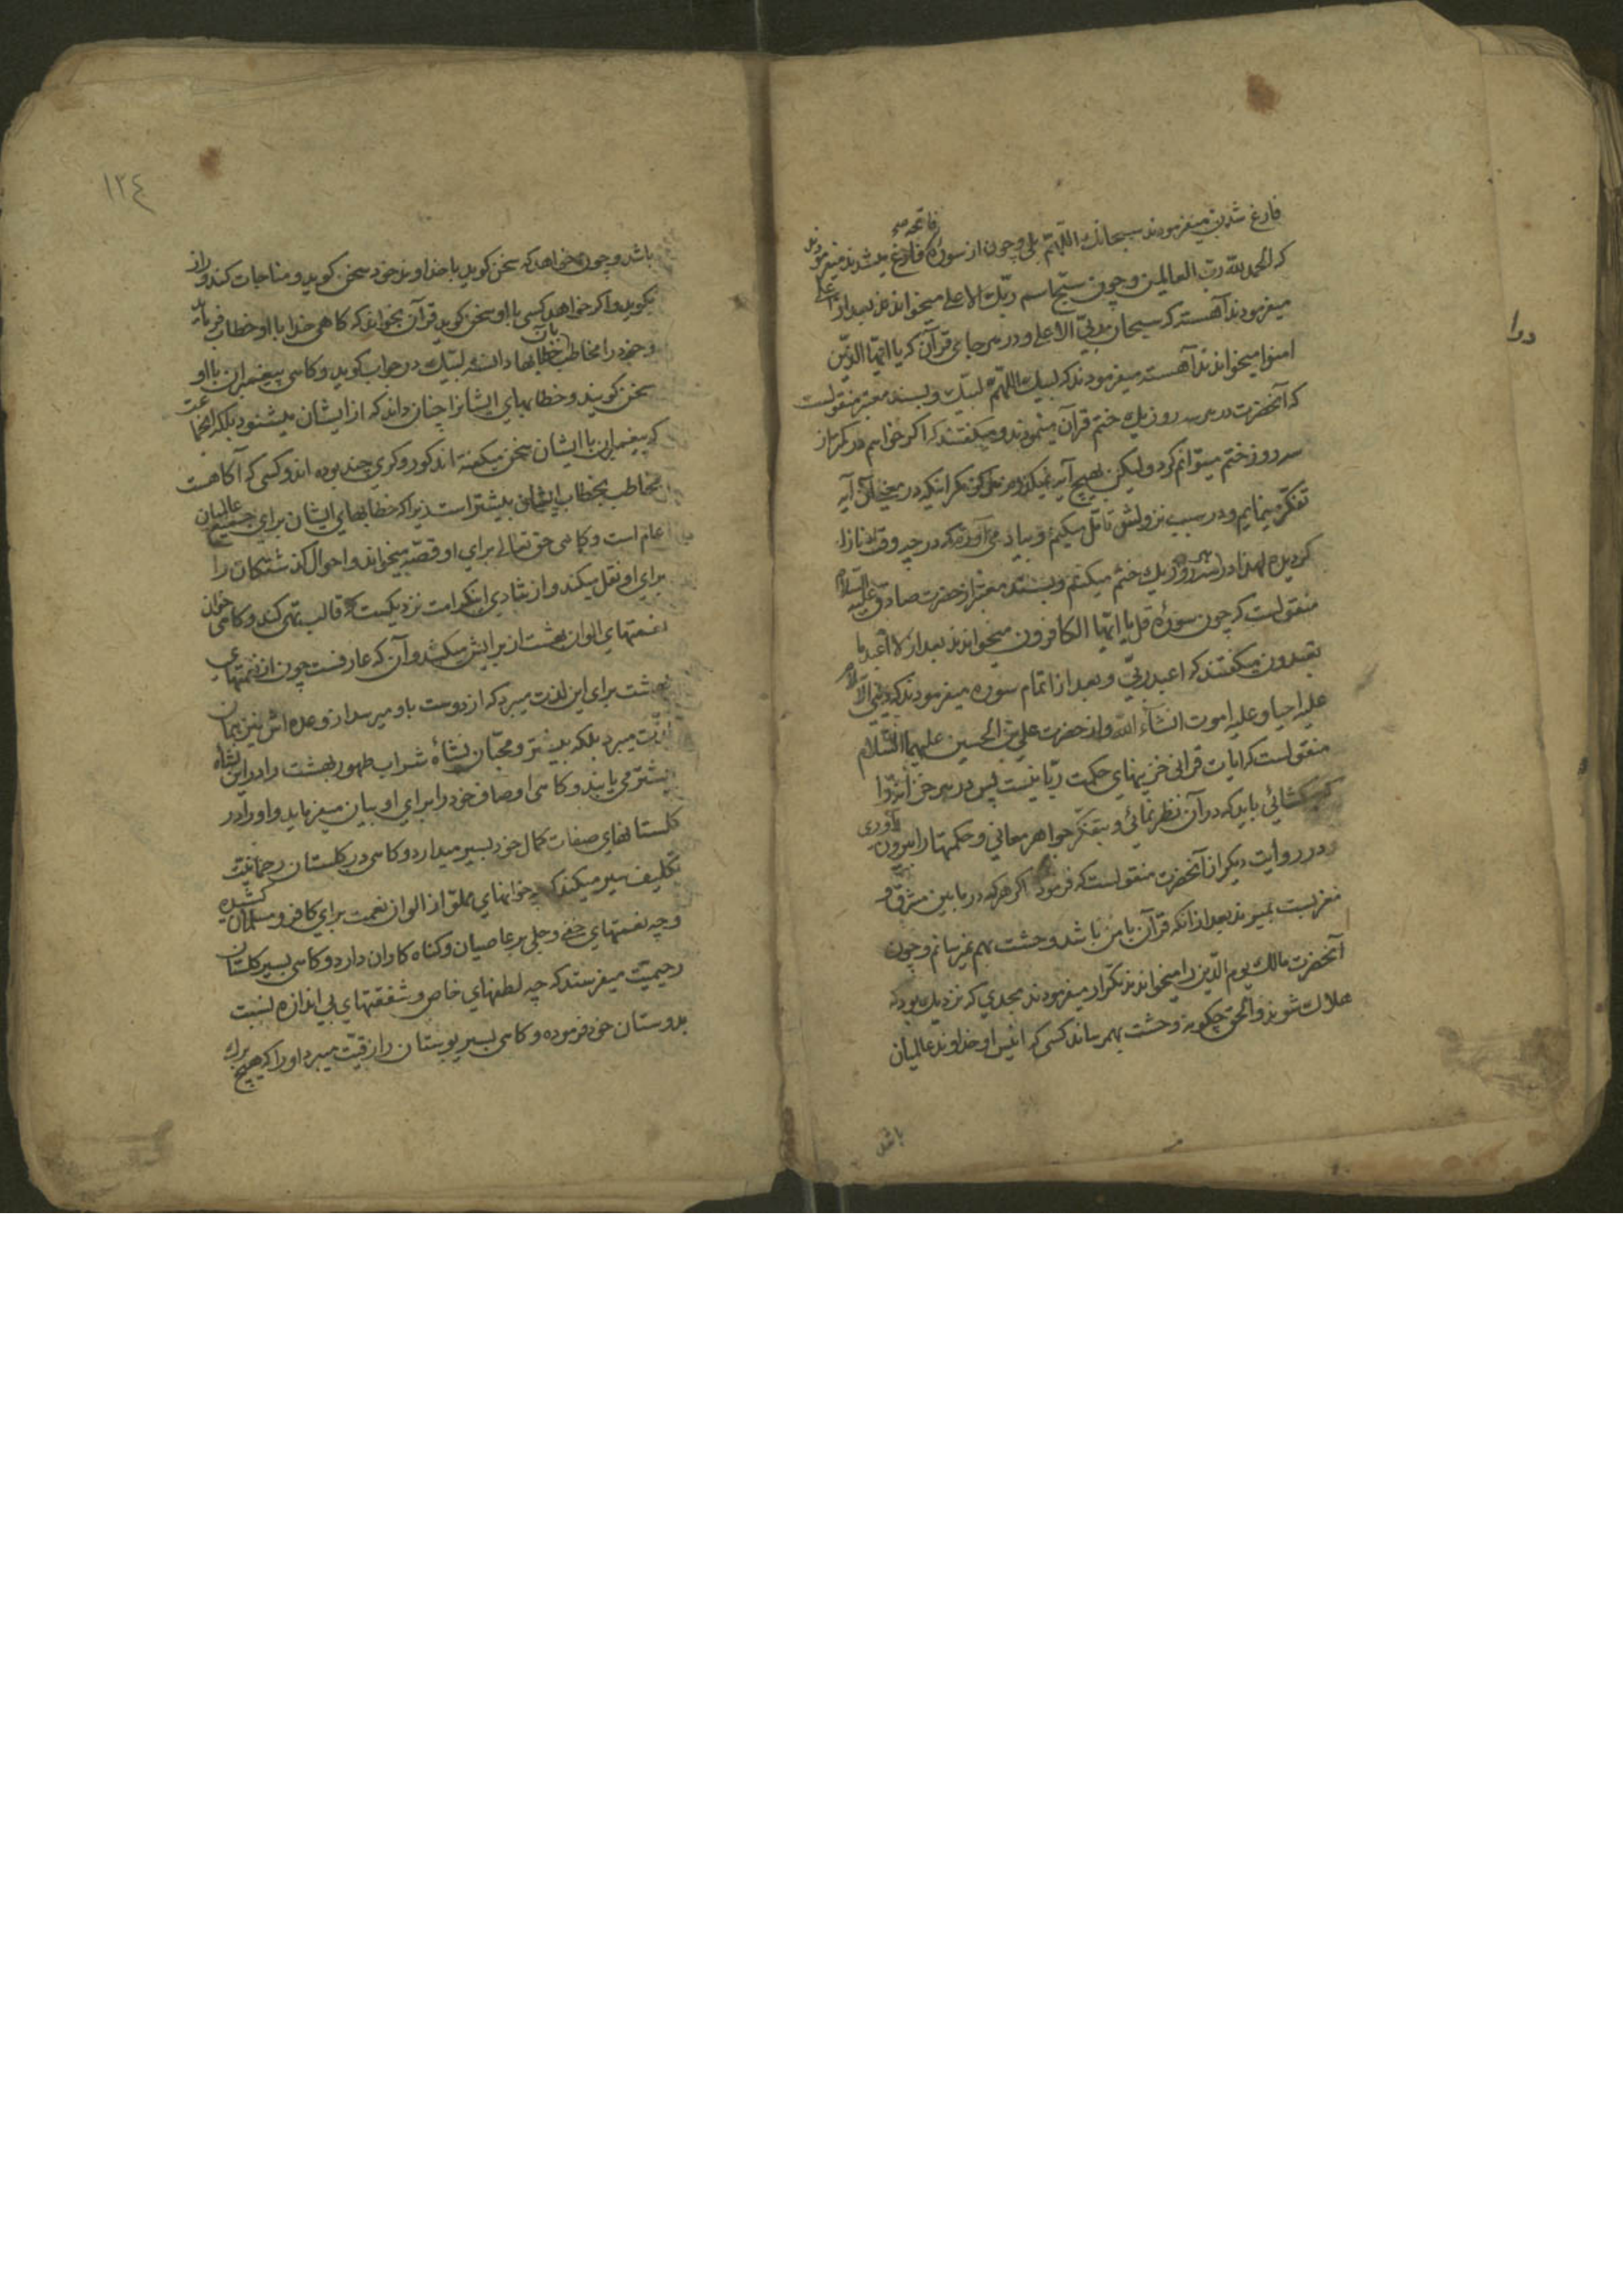 فارغ شدن میفرمودند سبحانك اللّهمّ بلی و چون از سورهٔ فاتحه فارغ میشدند میفرمودند
که الحمد للّه ربّ العالمین و چون سبّح اسم ربّك الاعلی میخواندند بعد از
میفرمودند آهسته که سبحان ربّی الاعلی و در هر جای قرآن که یا ایّها الذّین
امنوا میخواندند آهسته میفرمودند که لبّیك اللّهمّ لبّیك و بسند معتبر منقولست
که آنحضرت در هر سه روز یك ختم قرآن مینمودند و میگفتند که اگر خواهم در کمتر از
سه روز ختم میتوانم کرد ولیکن بهیچ آیه نمیگذرم مگر اینکه در آن آیه
تفکّر مینمایم و در سبب نزولش تامّل میکنم و بیاد می آورم که در چه وقت نازل
گردیده لهذا در سه روز یك ختم میکنم و بسند معتبر از حضرت صادق علیه السّلام
منقولست که چون سورهٔ قل یا ایّها الکافرون میخواندند بعد از لا اعبد ما
تعبدون میگفتند که اعبد ربّی و بعد از اتمام سوره میفرمودند که دینی الاسلام
علیه احیا و علیه اموت انشآء اللّه و از حضرت علیّ بن الحسین علیهما السّلام
منقولست که ایات قرانی خزینهای حکمت ربّانیست پس در هر خزانه را
که بگشائی باید که در آن نظر نمائی و بتفکّر جواهر معانی و حکمتها را بیرون آوری
و در روایت دیگر از آنحضرت منقولست که فرمود اگر هر که در ما بین مشرق و
مغربست بمیرند بعد از انکه قرآن با من باشد وحشت بهم نمیرسانم و چون
آنحضرت مالك یوم الدّین را میخواندند تکرار میفرمودند بحدی که نزدیك بود که
هلاك شوند و الحق چگونه وحشت بهم رساند کسی که انیس او خداوند عالمیان
باشد
درا
۱۲٤
باشد و چون خواهد که سخن گوید با خداوند خود سخن گوید و مناجات کند و راز
بگوید و اگر خواهد کسی با او سخن گوید قرآن بخواند که گاهی خدا با او خطاب فرماید
و خود را مخاطب بآن خطابها دانسته لبّیك در جواب گوید و گاهی پیغمبران با او
سخن گویند و خطابهای ایشانرا چنان داند که از ایشان میشنود بلکه انجماعت
که پیغمبران با ایشان سخن میگفته اند کور و کری چند بوده اند و کسی که آگاهست
مخاطب بخطاب ایشان بیشتر است زیرا که خطابهای ایشان برای جمیع عالمیان
عام است و گاهی حق تعالی برای او قصّه میخواند و احوال گذشتگان را
برای او نقل میکند و از شادی اینکرامت نزدیکست که قالب تهی کند و گاهی خوان
نعمتهای الوان بهشت از برایش میکشد و آن که عارفست چون از نعمتهای
بهشت برای این لذت میبرد که از دوست باو میرسد از وعده اش نیز همان
لذّت میبرد بلکه بیشتر و محبّان نشأه شراب طهور بهشت را در این نشاه
بیشتر می یابند و گاهی اوصاف خود را برای او بیان میفرماید و او را در
گلستانهای صفات کمال خود بسیر میدارد و گاهی در گلستان رحمانیّت
تکلیف سیر میکند که چه خوانهای ملوّ از الوان نعمت برای کافر و مسلمان کشیده
و چه نعمتهای خفی و جلی بر عاصیان و گناه کاران دارد و گاهی بسیر گلستان
رحیمیّت میفرستد که چه لطفهای خاص و شفقتهای بی اندازه نسبت
بدوستان خود فرموده و گاهی بسیر بوستان رازقیّت میبرد او را که هیچ برك